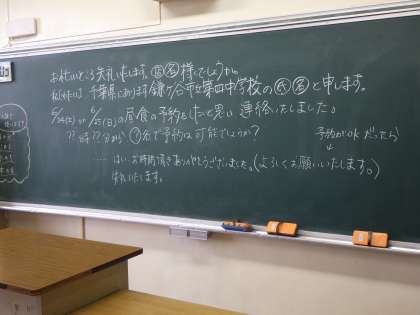 お忙しいところ失礼いたします。店名様でしょうか。
私(わたし)は千葉県にあります鎌ヶ谷市立第四中学校の氏名と申します。
6/24(土) or 6/25(日)の昼食の予約をしたいと思い連絡いたしました。
??時??分から?名で予約は可能でしょうか?
予約がOKだったら
↓
…… はい、お時間頂きありがとうございました。(よろしくお願いいたします。)
失礼いたします。